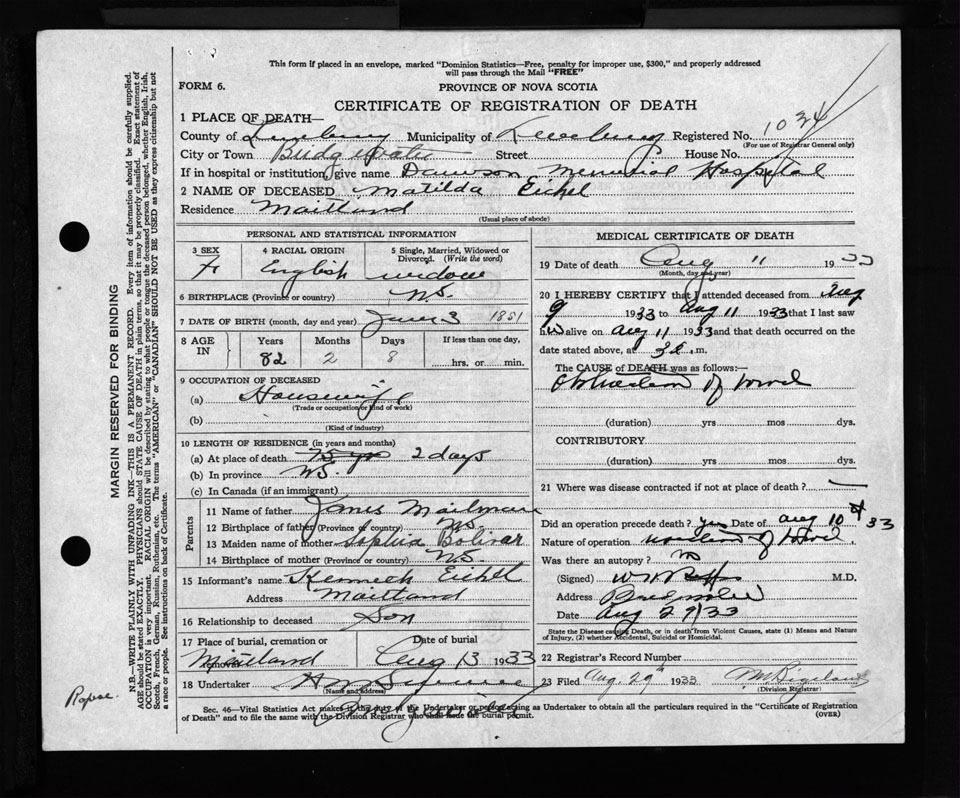 This form if placed in an envelope, marked "Dominion Statistics—Free, penalty for improper use, $300," and properly addressed
will pass through the Mail "FREE"
FORM 6.
PROVINCE OF NOVA SCOTIA
CERTIFICATE OF REGISTRATION OF DEATH
1 PLACE OF DEATH—
County of Lunenburg Municipality of Lunenburg Registered No. 1034
(For use of Registrar General only)
City or Town Bridgewater Street House No.
If in hospital or institution, give name Dawson Memorial Hospital
2 NAME OF DECEASED Matilda Eichel
Residence Maitland
(Usual place of abode)
PERSONAL AND STATISTICAL INFORMATION
3 SEX
F
4 RACIAL ORIGIN
English
5 Single, Married, Widowed or
Divorced. (Write the word)
widow
6 BIRTHPLACE (Province or country) N.S.
7 DATE OF BIRTH (month, day and year) June 3 1851
8 AGE IN
Years Months Days If less than one day,
82 2 8 hrs. or min.
9 OCCUPATION OF DECEASED
(a) Housewife
(Trade or occupation or kind of work)
(b)
(Kind of industry)
10 LENGTH OF RESIDENCE (in years and months)
(a) At place of death 75 yrs 2 days
(b) In province N.S.
(c) In Canada (if an immigrant)
Parents
11 Name of father James Mailman
12 Birthplace of father (Province or country) N.S.
13 Maiden name of mother Sophia Bolivar
14 Birthplace of mother (Province or country) N.S.
15 Informant's name Kenneth Eichel
Address Maitland
16 Relationship to deceased Son
17 Place of burial, cremation or
removal Maitland
Date of burial
Aug 13 1933
18 Undertaker
(Name and address)
MEDICAL CERTIFICATE OF DEATH
19 Date of death Aug 11 1933
(Month, day and year)
20 I HEREBY CERTIFY that I attended deceased from Aug
9 1933 to Aug 11 1933 that I last saw
h alive on Aug 11 1933 and that death occurred on
date stated above, at .m.
The CAUSE of DEATH was as follows:—
Obstruction of bowel
(duration) yrs mos dys.
CONTRIBUTORY
(duration) yrs. mos. dys.
21 Where was disease contracted if not at place of death?
Did an operation precede death? yes Date of Aug 10 33
Nature of operation of bowel
Was there an autopsy? no
(Signed) M.D.
Address Bridgewater
Date Aug 29/33
State the Disease causing Death, or in death from Violent Causes, state (1) Means and Nature
of Injury, (2) whether Accidental, Suicidal or Homicidal.
22 Registrar's Record Number
23 Filed Aug. 29 1933
(Division Registrar)
Sec. 46—Vital Statistics Act makes it the duty of Undertaker or person acting as Undertaker to obtain all the particulars required in the "Certificate of Registration
of Death" and to file the same with the Division Registrar who shall issue the burial permit.
(OVER)
MARGIN RESERVED FOR BINDING
N.B.—WRITE PLAINLY WITH UNFADING INK—THIS IS A PERMANENT RECORD. Every item of information should be carefully supplied.
AGE should be stated EXACTLY. PHYSICIANS should STATE CAUSE OF DEATH in plain terms, so that it may be properly classified. Exact statement of
OCCUPATION is very important. RACIAL ORIGIN will be described by stating to what people or tongue the deceased person belonged, whether English, Irish,
Scotch, French, German, Russian, Ruthenian, etc. The terms "AMERICAN" or "CANADIAN" SHOULD NOT BE USED as they express citizenship but not
a race or people. See instructions on back of Certificate.